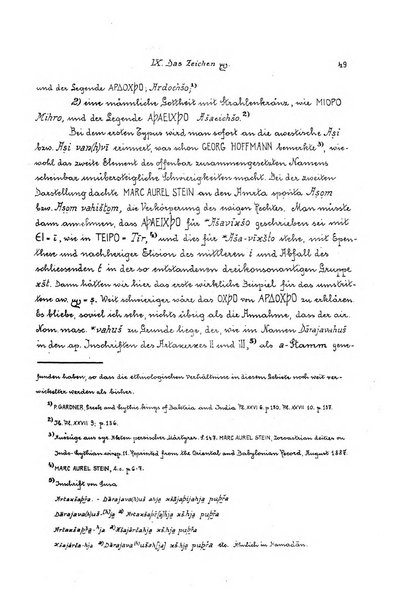 IX. Das Zeichen ןשן. 49
und der Legende ΑΡΔΟΧϷΟ, Ardochšo,¹)
2) eine männliche Gottheit mit Strahlenkranz, wie ΜΙΟΡΟ
Mihro, und der Legende ΑϷΑΕΙΧϷΟ Ašaeichšo.²)
Bei dem ersten Typus wird man sofort an die awestische Aṣ̌i
bzw. Aṣ̌i vaṇ(h)vī erinnert, was schon GEORG HOFFMANN bemerkte³), wie-
wohl das zweite Element des offenbar zusammengesetzten Namens
scheinbar unübersteigliche Schwierigkeiten macht. Bei der zweiten
Darstellung dachte MARC AUREL STEIN an den Amṛta spənta Aṣ̌əm
bzw. Aṣ̌əm vahištəm, die Verkörperung des ewigen Rechtes. Man müsste
dann annehmen, dass ΑϷΑΕΙΧϷΟ für *Ašavīxšo geschrieben sei mit
ΕΙ = ī, wie in ΤΕΙΡΟ = Tīr,⁴) und dies für *Aša-vixšto stehe, mit Epen-
these und nachheriger Elision des mittleren i und Abfall des
schliessenden t in der so entstandenen dreikonsonantigen Gruppe
xšt. Dann hätten wir hier das erste wirkliche Beispiel für das umstrit-
tene aw. = ṣ̌. Weit schwieriger wäre das ΟΧϷΟ von ΑΡΔΟΧϷΟ zu erklären.
Es bliebe, soviel ich sehe, nichts übrig als die Annahme, dass der air.
Nom. masc. *vahuš zu Grunde liege, der, wie im Namen Dārajavahuš
in den ap. Inschriften des Artaxerxes II und III,⁵) als a-Stamm gene-
funden haben, so dass die ethnologischen Verhältnisse in diesem Gebiete noch weit ver-
wickelter werden als bisher.
¹) P. GARDNER, Greek and Scythic kings of Baktria and India Pl. XXVI 6. p. 130, Pl. XXVII 10. p. 137.
²) Ib. Pl. XXVII 3; p. 136.
³) Auszüge aus syr. Akten persischer Märtyrer. S. 147. MARC AUREL STEIN, Zoroastrian deities on
Indo-Scythian coins p. 11. Reprinted from the Oriental and Babylonian Record, August 1887.
⁴) MARC AUREL STEIN, l. c. p. 6-7.
⁵) Inschrift von Susa